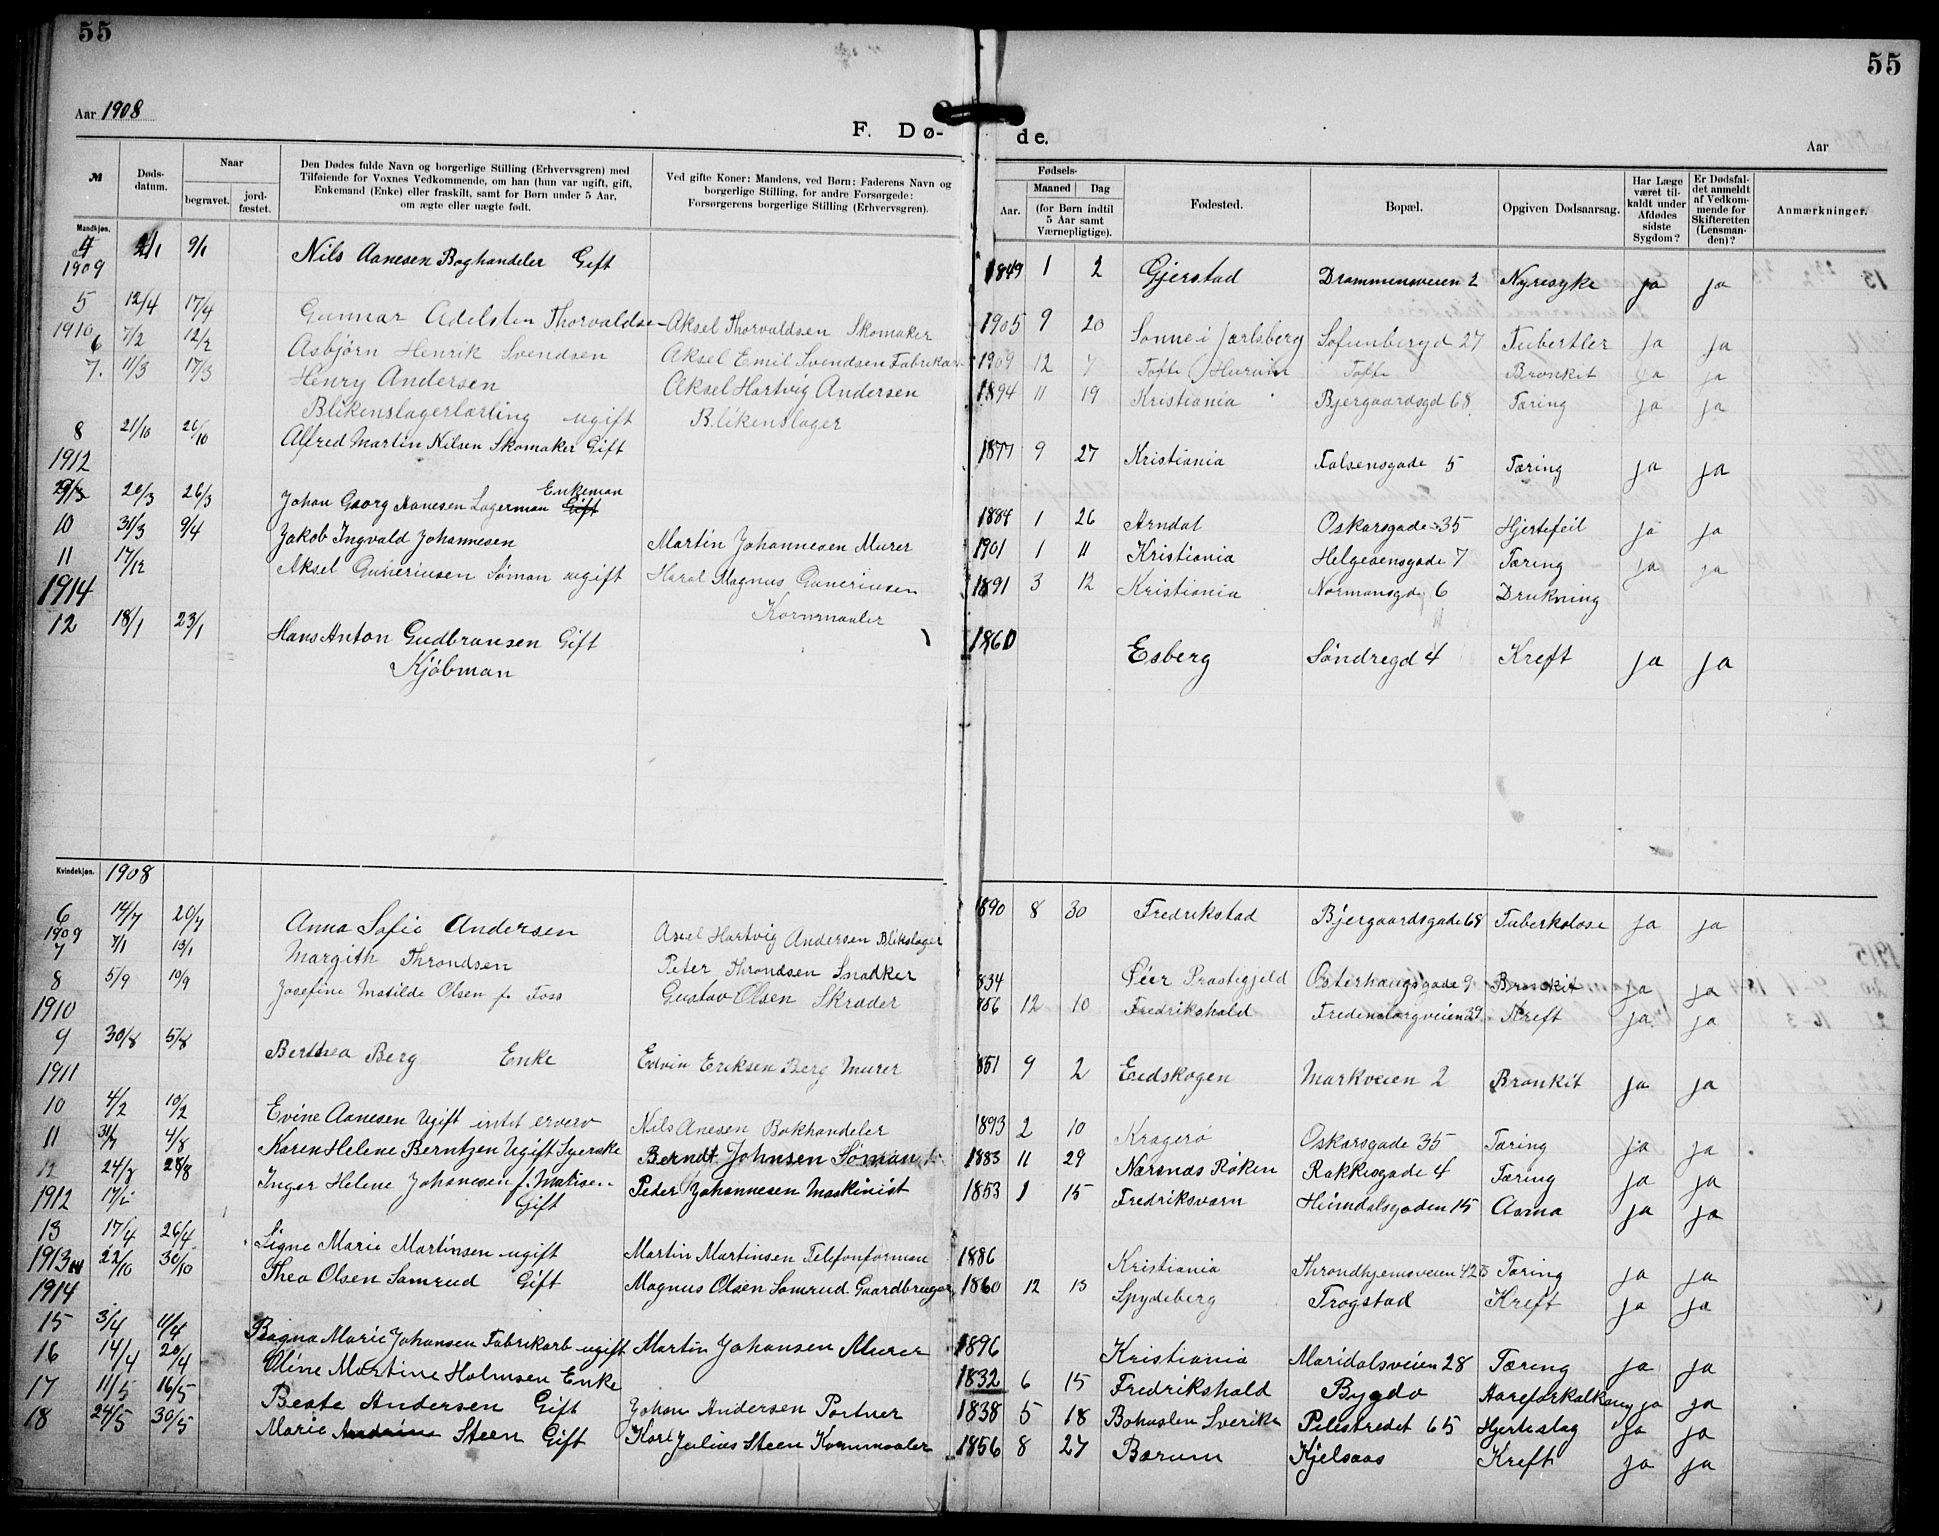 55
55
Aar 1908
F. Dø-
de.
Aar
№
Døds-
datum.
Naar
begravet.
jord-
fæstet.
Den Dødes fulde Navn og borgerlige Stilling (Erhvervsgren) med
Tilføiende for Voxnes Vedkommende, om han (hun var ugift, gift,
Enkemand (Enke) eller fraskilt, samt for Børn under 5 Aar,
om ægte eller nægte født.
Ved gifte Koner: Mandens, ved Børn: Faderens Navn og
borgerlige Stilling, for andre Forsørgede:
Forsørgerens borgerlige Stilling (Erhvervsgren).
Fødsels-
Aar.
Maaned
Dag
(for Børn indtil
5 Aar samt
Værnepligtige).
Fødested.
Bopæl.
Opgiven Dødsaarsag.
Har Læge
været til-
kaldt under
Afdødes
sidste
Sygdom?
Er Dødsfal-
det anmeldt
af Vedkom-
mende for
Skifteretten
(Lensman-
den)?
Anmærkninger.
Mandkjøn.
4 2/1 9/1 Nils Aanesen Boghandeler Gift 1849 1 2 Gjerstad Drammensveien 2 Nyresyke ja ja
1909
5 12/4 17/4 Gunnar Adelsten Thorvaldse- Aksel Thorvaldsen Skomaker 1905 9 20 Sonne i Jarlsberg Sofienbergd 27 Tubertler ja ja
1910
6 7/2 12/2 Asbjörn Henrik Svendsen Aksel Emil Svendsen Fabrikar 1909 12 7 Tofte Hurum Tofte Bronkit ja ja
7. 11/3 17/3 Henry Andersen Aksel Hartvig Andersen 1894 11 19 Kristiania Bjergaardsgd 68 Tæring ja ja
Blikenslagerlærling ugift Blikenslager
8 21/10 26/10 Alfred Martin Nilsen Skomaker Gift 1877 9 27 Kristiania Falsensgade 5 Tæring ja ja
1912
20/3 26/3 Johan Georg Aanesen Lagerman Gift Enkeman 1884 1 26 Arndal Oskarsgade 35 Hjertefeil ja ja
10 31/3 9/4 Jakob Ingvald Johannesen Martin Johannesen Murer 1901 1 11 Kristiania Helgesensgade 7 Tæring ja ja
11 17/12 Aksel Guneriusen Söman ugift Harol Magnus Guneriusen 1891 3 12 Kristiania Normansgd 6 Drukning
Kornmaaler
1914
12 18/1 23/1 Hans Anton Gudbransen Gift 1860 Esberg Söndregd 4 Kreft ja ja
Kjöbman
Kvindekjøn. 1908
6 14/7 20/7 Anna Sofie Andersen Axel Hartvig Andersen Blikslager 1890 8 30 Fredrikstad Bjergaardsgade 68 Tuberkolose ja ja
1909
7 7/1 13/1 Margith Throndsen Peter Throndsen Snædker 834 Öier Præstegjeld Osterhausgade 9 Bronkit ja ja
8 5/9 10/9 Josefine Matilde Olsen f. Foss Gustav Olsen Skræder 856 12 10 Fredrikshald Fredensborgveien 39 Kreft ja ja
1910
9 30/8 5/8 Berthea Berg Enke Edvin Eriksen Berg Murer 851 9 2 Eidskogen Markveien 2 Bronkit ja ja
1911
10 4/2 10/2 Evine Aanesen Ugift intet erverv Nils Anesen Bokhandeler 1893 2 10 Kragerö Oskarsgade 35 Tæring ja ja
11 31/7 4/8 Karen Helene Berntzen Ugift Syerske Berndt Johnsen Söman 1883 11 29 Næsnæs Röken Rakkesgade 4 Tæring ja ja
12 24/8 28/8 Inger Helene Johanesen f. Matisen Peder Johannesen Maskinist 1853 1 15 Fredriksværn Heimdalsgaden 15 Asma ja ja
Gift
1912
13 17/4 26/4 Signe Marie Martinsen ugift Martin Martinsen Telefonforman 1886 Kristiania Throndhjemsveien 42 B Tæring ja ja
1913 22/10 30/10 Thea Olsen Samrud Gift Magnus Olsen Samrud Gaardbruger 1860 12 13 Spydeberg Trogstad Kreft ja ja
1914
15 3/4 11/4 Bagna Marie Johansen Fabrikarb ugift Martin Johansen Murer 1896 Kristiania Maridalsveien 28 Tæring ja ja
16 14/4 20/4 Oline Martine Holmsen Enke 1832 6 15 Fredrikshald Bygdö Aareforkalkning ja ja
17 11/5 16/5 Beate Andersen Gift Johan Andersen Portner 1838 5 18 Bohuslen Sverike Pilestredet 65 Hjerteslag ja ja
18 24/5 30/5 Marie Steen Gift Karl Julius Steen Kornmaaler 1856 8 27 Bærum Kjelsaas Kreft ja ja